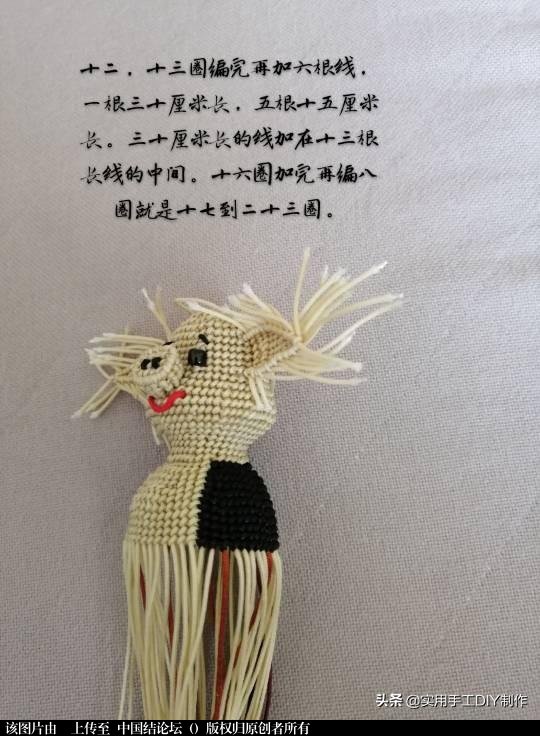 十二，十三圈编完再加六根线，
一根三十厘米长，五根十五厘米
长。三十厘米长的线加在十三根
长线的中间。十六圈加完再编八
圈就是十七到二十三圈。
头条 @实用手工DIY制作
该图片由 上传至 中国结论坛 () 版权归原创者所有